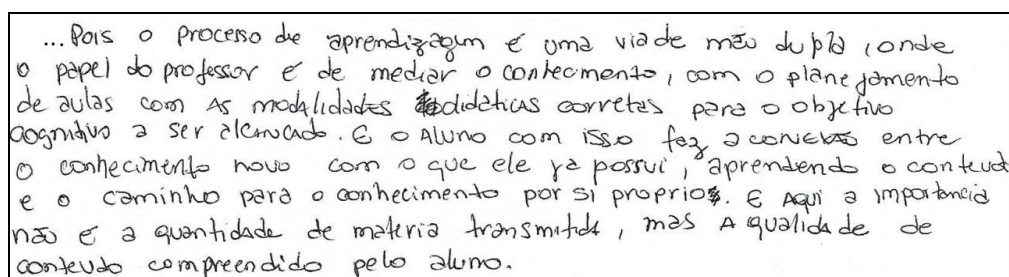 ...Pois o processo de aprendizagem é uma via de mão dupla, onde
o papel do professor é de mediar o conhecimento, com o planejamento
de aulas com as modalidades didáticas corretas para o objetivo
cognitivo a ser alcançado. E o Aluno com isso faz a conexão entre
o conhecimento novo com o que ele ja possui, aprendendo o conteudo
e o caminho para o conhecimento por si proprio. E Aqui a importancia
não é a quantidade de materia transmitida, mas A qualidade de
conteudo compreendido pelo aluno.